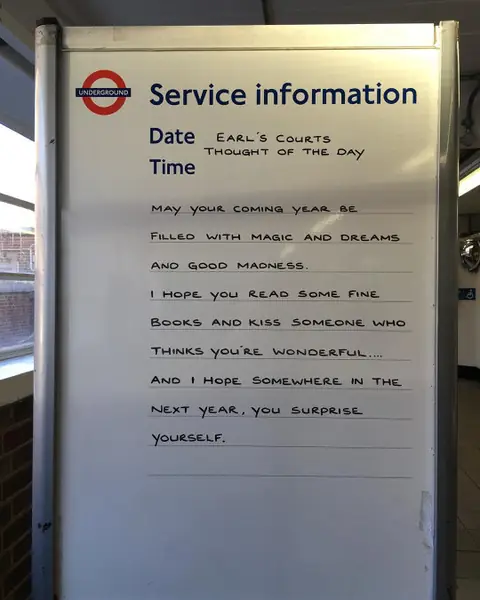 UNDERGROUND
Service information
Date EARL'S COURTS
THOUGHT OF THE DAY
Time
MAY YOUR COMING YEAR BE
FILLED WITH MAGIC AND DREAMS
AND GOOD MADNESS.
I HOPE YOU READ SOME FINE
BOOKS AND KISS SOMEONE WHO
THINKS YOU'RE WONDERFUL....
AND I HOPE SOMEWHERE IN THE
NEXT YEAR, YOU SURPRISE
YOURSELF.